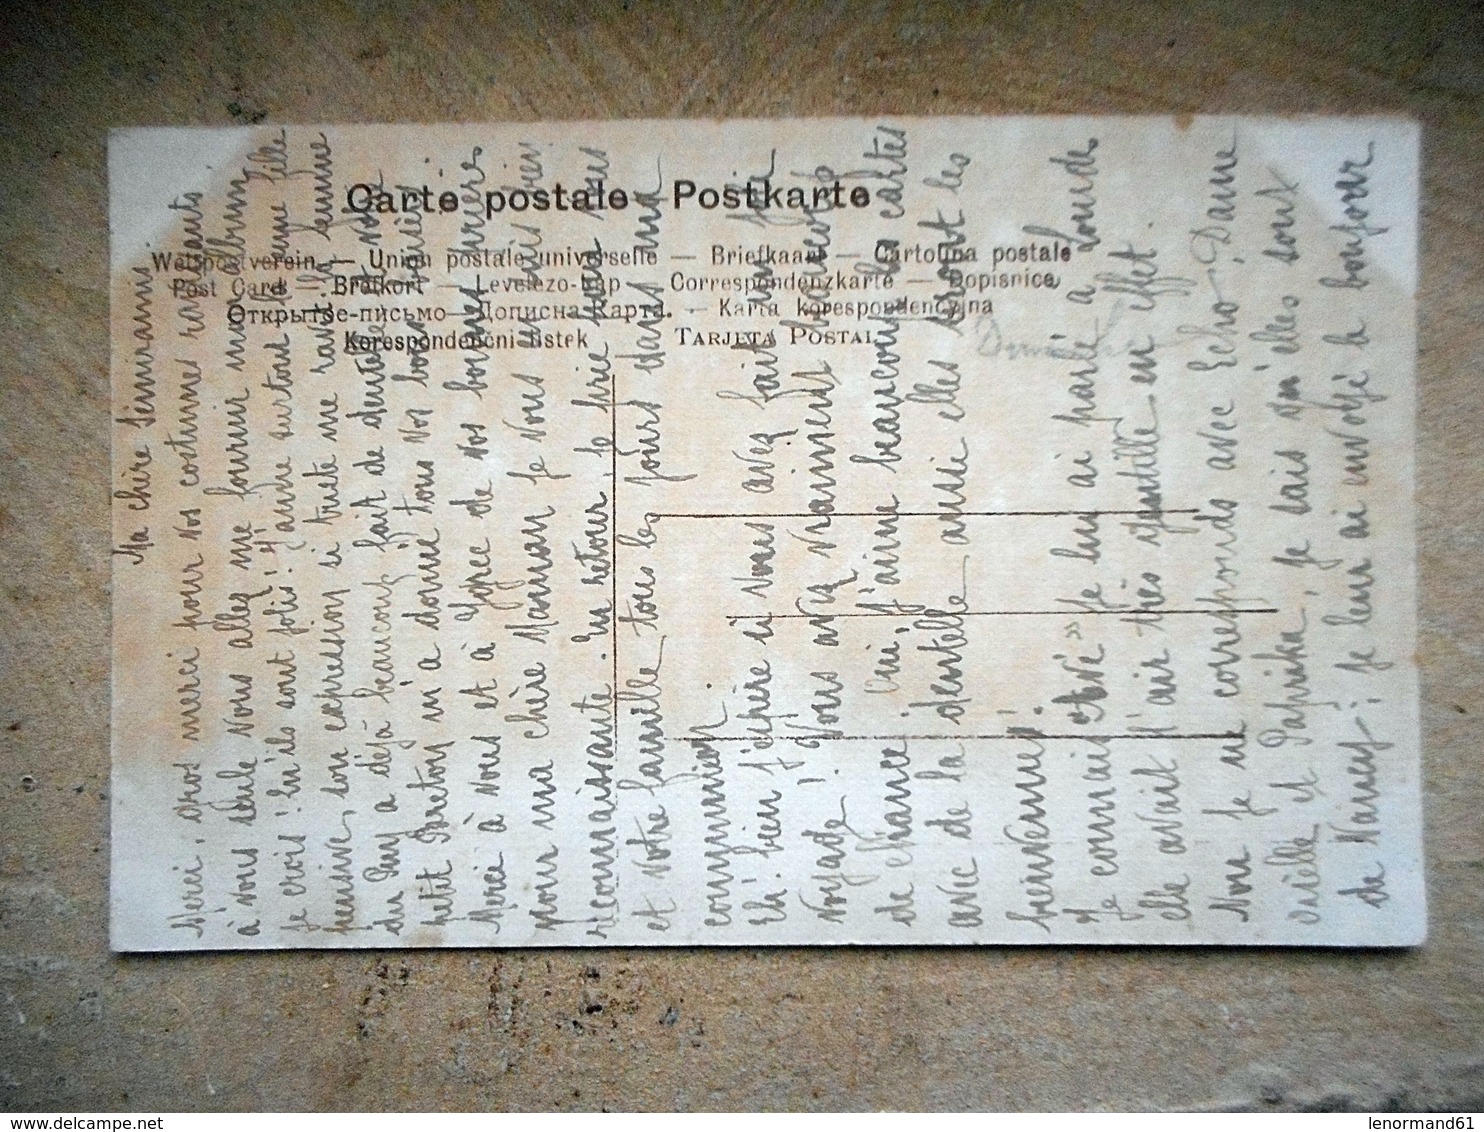 Carte postale Postkarte
Weltpostverein — Union postale universelle — Briefkaart — Cartolina postale
Post Card — Brefkort — Levelezo-Lap — Correspondenzkarte — Dopisnice
Открытое-письмо — Дописна Карта. - Karta korespondencyjna
Korespondenční listek TARJETA POSTAL
Ma chère Semiramis
Merci, gros merci pour vos costumes ravissants
à vous seule vous allez me fournir mon album
je crois! Qu'ils sont jolis! J'aime surtout la jeune fille
pensive, son expression si triste me ravit. La femme
du Puy a déjà beaucoup fait de dentelle et votre
petit Breton m'a donné tous vos bons baisers
Merci à vous et à de vos bonnes prières
pour ma chère Maman je vous en suis bien
reconnaissante. En retour je prie pour vous
et votre famille tous les jours dans ma
communion.
Eh! bien j'espère si vous avez fait un joli
voyage! Vous avez vraiment beaucoup
de chance! Oui, j'aime beaucoup les cartes
avec de la dentelle aussi elles seront les
bienvenues.
Je connais «Avé» je lui ai parlé à Lourdes
elle avait l'air très gentille en effet.
Non je ne corresponds avec Echo, Dame
et Paprika, je sais qu'elles sont
de Nancy; je leur ai envoyé le bonjour
delcampe.net
lenormand61